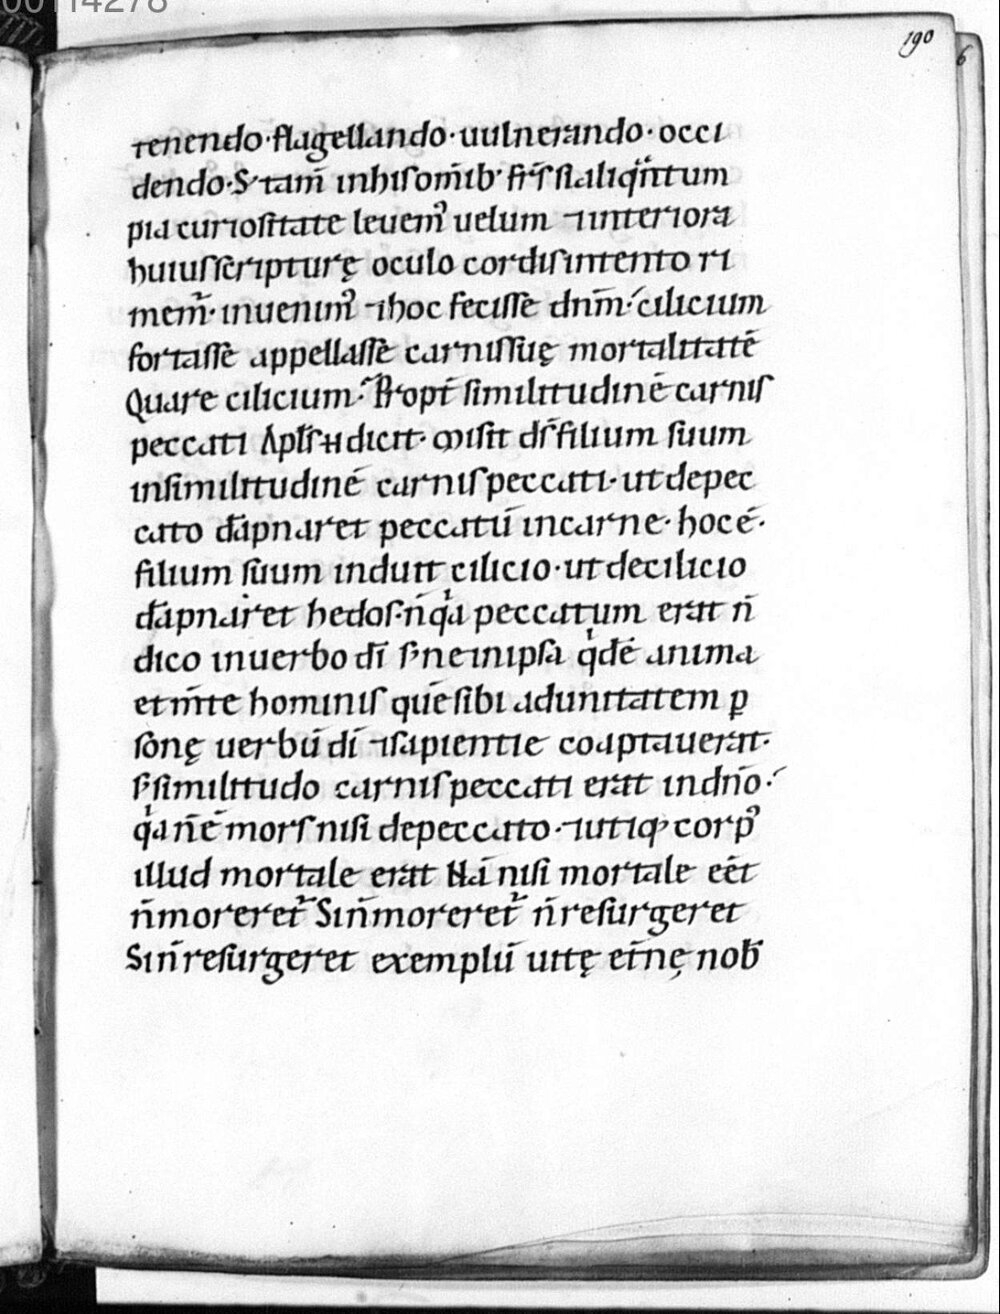 00114278
190
6
tenendo·flagellando·uulnerando·occi
dendo·S; tam̄ inhisom̄ib; fr̄s sialiqͣntum
pia curiositate leuem᷒ uelum ⁊interiora
huiusscripturę oculo cordisintento ri
mem᷒· inuenim᷒ ⁊hoc fecisse dnm̄· cilicium
fortasse appellasse carnissuę mortalitatē
Quare cilicium· Propt̄ similitudinē carnis
peccati Apl̄s H dicit· Misit ds̄ filium suum
insimilitudinē carnis peccati· ut depec
cato dāpnaret peccatū incarne· hoc ē·
filium suum induit cilicio· ut decilicio
dāpnaret hedos· n̄ qͥa peccatum erat n̄
dico inuerbo dī s; neinipsa qͥdē anima
et m̄te hominis quē sibi adunitatem ꝑ
sonę uerbū dī ⁊sapientie coaptauerat·
s; similitudo carnis peccati erat indn̄o·
qͥa n̄ ē mors nisi depeccato· ⁊utiq; corp᷒
illud mortale erat Nā nisi mortale eēt
n̄moreret᷒ Sin̄moreret᷒ n̄resurgeret
Sin̄resurgeret exemplū uitę et̄nę nob̄